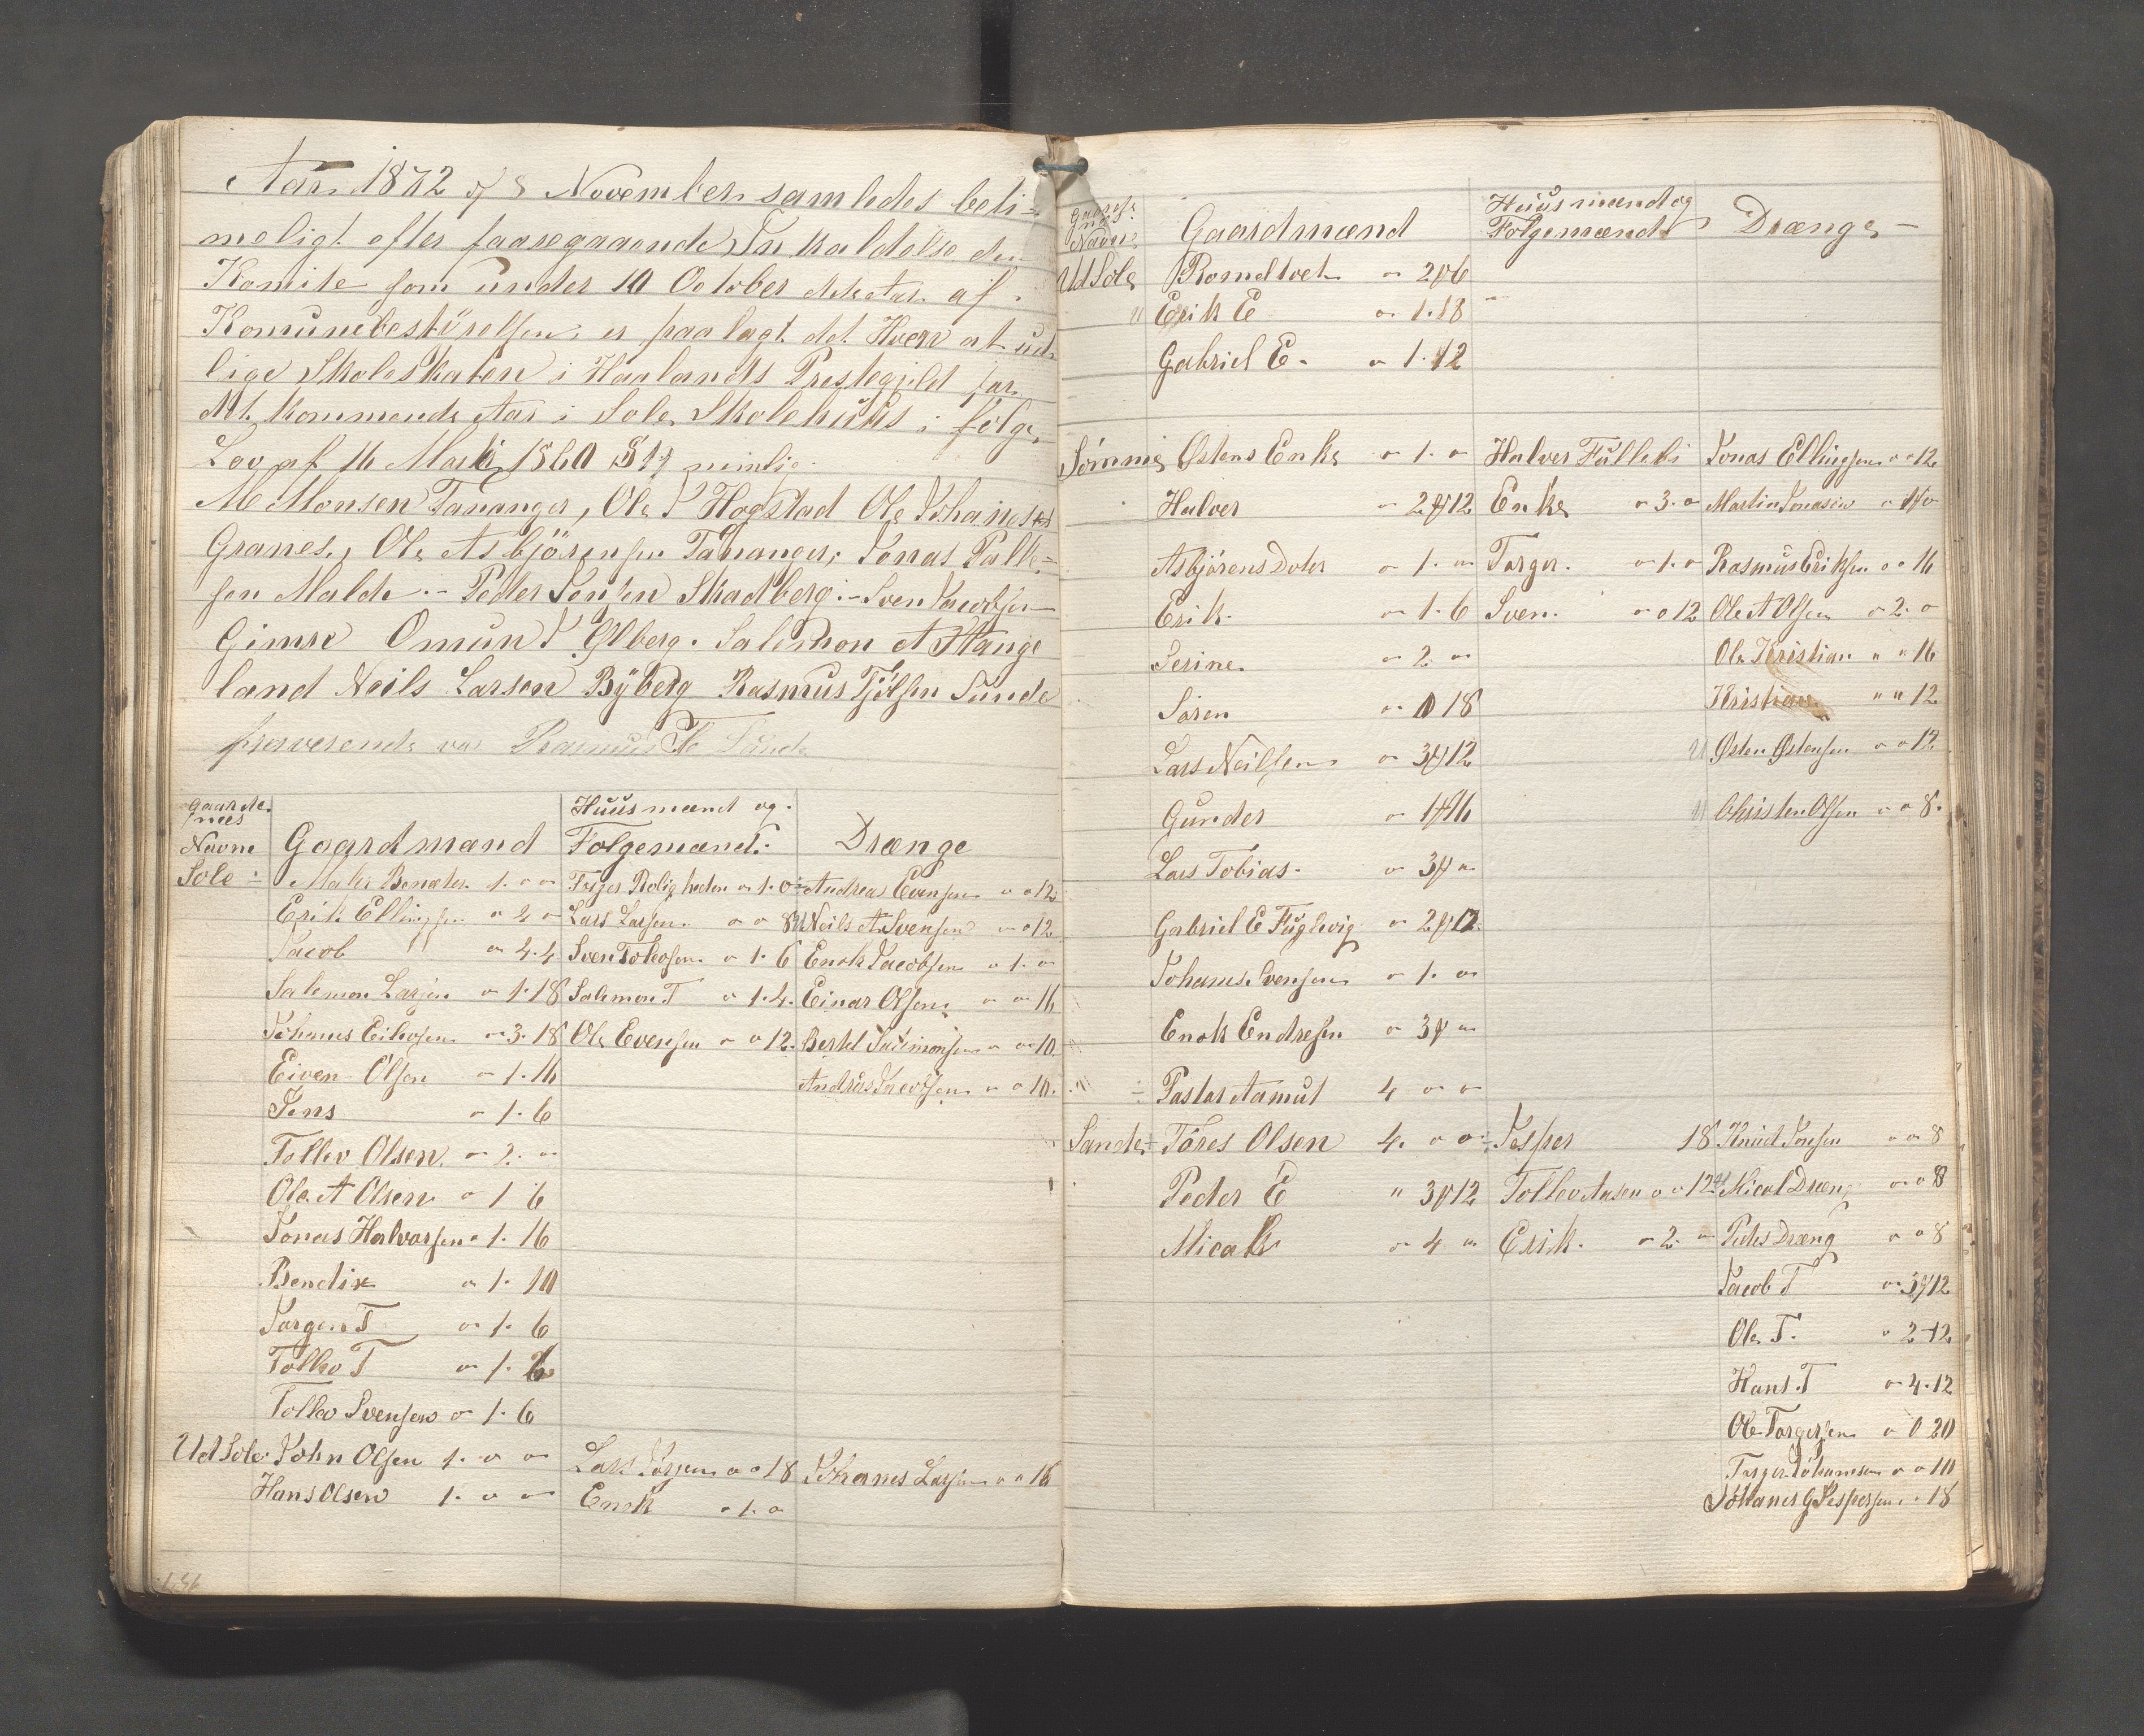 Aar 1872 8 November samledes beti-
meligt efter faaregaaende Inkaldelse den
Komite som under 10 October dette Aar af
Komunebestÿrelsen er paalagt det Hverv at ud
lige Skoleskaten i Haalands Prestegjeld for
det kommende Aar i Sole Skolehuus i følge
Lov af 16 Mai 1860 § 17 nemlig
M Monsen Tananger, Ole J Hogstad Ole Johanesen
Granes, Ole Asbjörensen Tananger, Jonas Palle-
sen Malde - Peder Jensen Skadberg - Sven Jacobsen
Gimre Omun J Ølberg. Salomon A Hauge
land Neils Larsen Bÿberg Rasmus Tjölsen Sünde
fraverende var Rasmus Sünde
Gaarde
nes
Navne Gaardmænd Huusmænd og Folgemænd Drænge
Sole - 1. Torger Roligheden 1. 0 Andreas Evensen 12
Erik Ellingsen 2 Lars Larsen 8 Neils A Svensen 12
Jacob 4.4 Sven Tolevsen 1. 6 Enok Jacobsen 1.
Salemon Larsen 1. 18 Salemon T 1. 4. Einar Olsen 16
Johanes Eilevsen 3. 18 Ole Evensen 12. Bertel Salimonsen 10
Eiven Olsen 1. 16 Andreas Jacobsen 10.
Jens 1. 6
Tollev Olsen 2.
Ole A Olsen 1 6
Jonas Halvorsen 1. 16
Bendix 1. 10
Jorgen T 1. 6
Tollev T 1. 6
Tollev Svensen 1. 6
Ud Sole John Olsen 1. Lars Jorgensen 18 Johanes Larsen 16
Hans Olsen 1. Enok 1.
Gaarde
nes
Navne Gaardmænd Huusmænd og Folgemænd Drænge -
Ud Sole Romeltvet 2 6
Erik E 1. 18
Gabriel E. 1. 12
Sömme Østens Enke 1. Halver Fülleli Jonas Ellingsen 12
Halver 2 12 Enke 3. Martin Jonasen 1
Asbjörens Doter 1. Torger. 1. Rasmus Eriksen 16
Erik. 1. 6 Sven. 12 Ole A Olsen 2.
Serine. 2 Ole Kristian " " 16
Sören 18 Kristian " " 12
Lars Neilsen 3 12 Østen Østensen 12
Gunder 1 16 Christen Olsen 8.
Lars Tobias. 3
Gabriel E Füglevig 2 12
Johanes Svensen 1.
Enok Endresen 3
Pastor Aamut 4
Sande Töres Olsen 4. Jesper 18 Knud Jonsen 8
Peder E " 3 12 Tollev Aasen 12 Mical Dræng 8
Micak 4 Erik. 2. Peder Dræng 8
Jacob T 3 12
Ole T. 2 12
Hans T 4. 12
Ole Torgersen 0 20
Torger Johanesen 10
Johanes G Jespersen 18